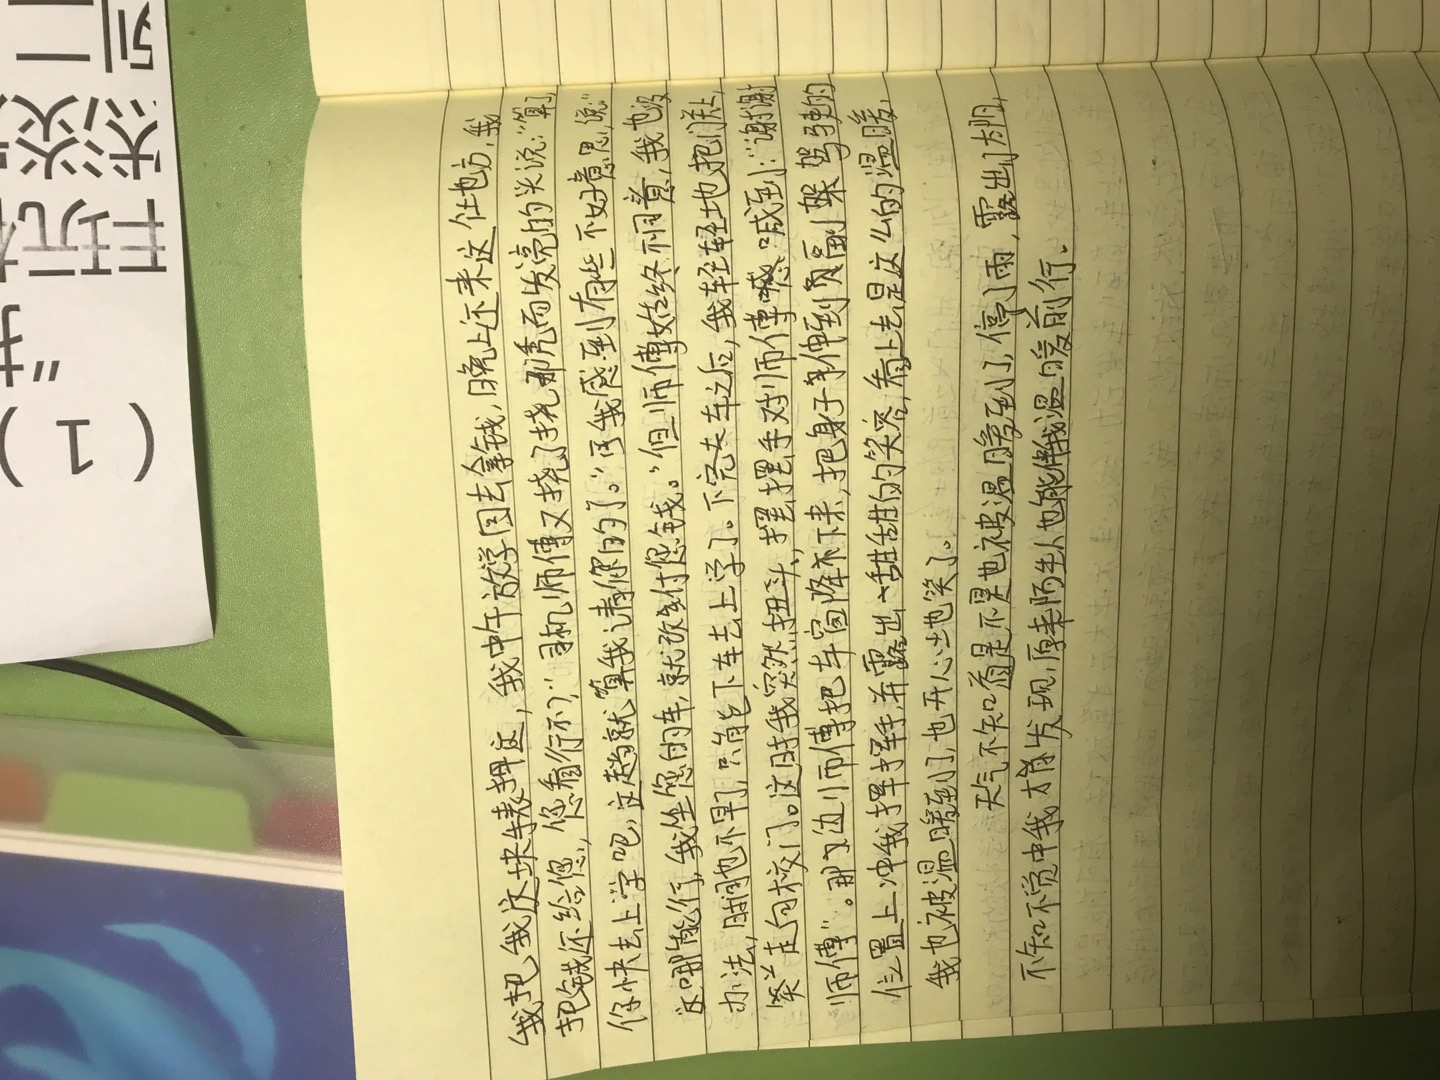 我把我这块表押这，我中午放学回去拿钱，晚上还来这个地方，我
把钱还给您，您看行不？”司机师傅又挠了挠那秃而发亮的头说：“算了
你快去上学吧，这趟就算我请你的了。”可我感到有些不好意思，说：“
这哪能行，我坐您的车，就改付您钱。”但师傅始终不同意，我也没
办法，时间也不早了，只能下车去上学了。下完车之后，我轻轻地把门关上，
笑着走向校门。这时我突然扭头，摆摆手对师傅喊到：“谢谢
师傅”。那边师傅把车窗降下来，把身子伸到副驾驶的
位置上冲我挥挥手并露出甜甜的笑容，看上去是这么的温暖，
我也被温暖到了，也开心地笑了。
天气不知道是不是也被温暖到了，停了雨，露出了太阳，
不知不觉中我才发现，原来陌生人也能伴我温暖前行。
（1）“